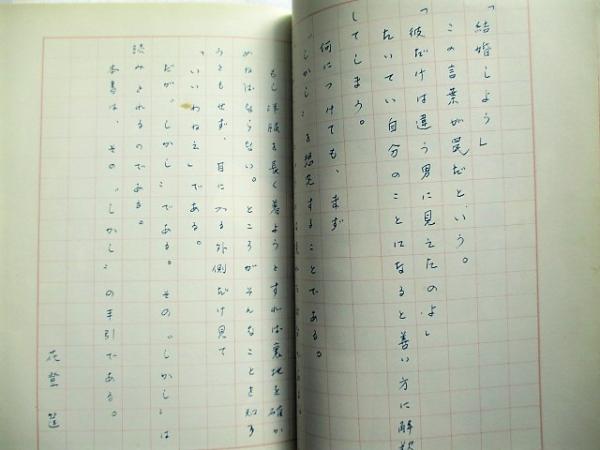 「結婚しよう」
この言葉が罠だという。
「彼だけは違う男に見えたのよ」
たいてい自分のことになると善い方に解釈
してしまう。
何につけても、まず
“しかし”を想定することである。
もし洋服を長く着ようとすれば裏地を確か
めねばならない。ところがそんなことを知ろ
うともせず、目に入る外側だけ見て
「いいわねえ」である。
だが、“しかし”である。その“しかし”は
読みとれるのである。
本書は、その“しかし”の手引である。
花登 筺